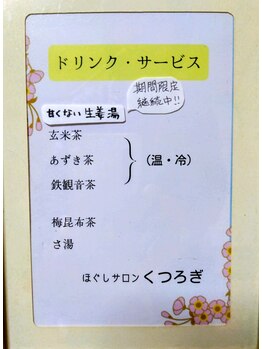 ドリンク・サービス
期間限定
継続中!!
甘くない生姜湯
玄米茶
あずき茶
鉄観音茶
(温・冷)
梅昆布茶
さ湯
ほぐしサロン くつろぎ